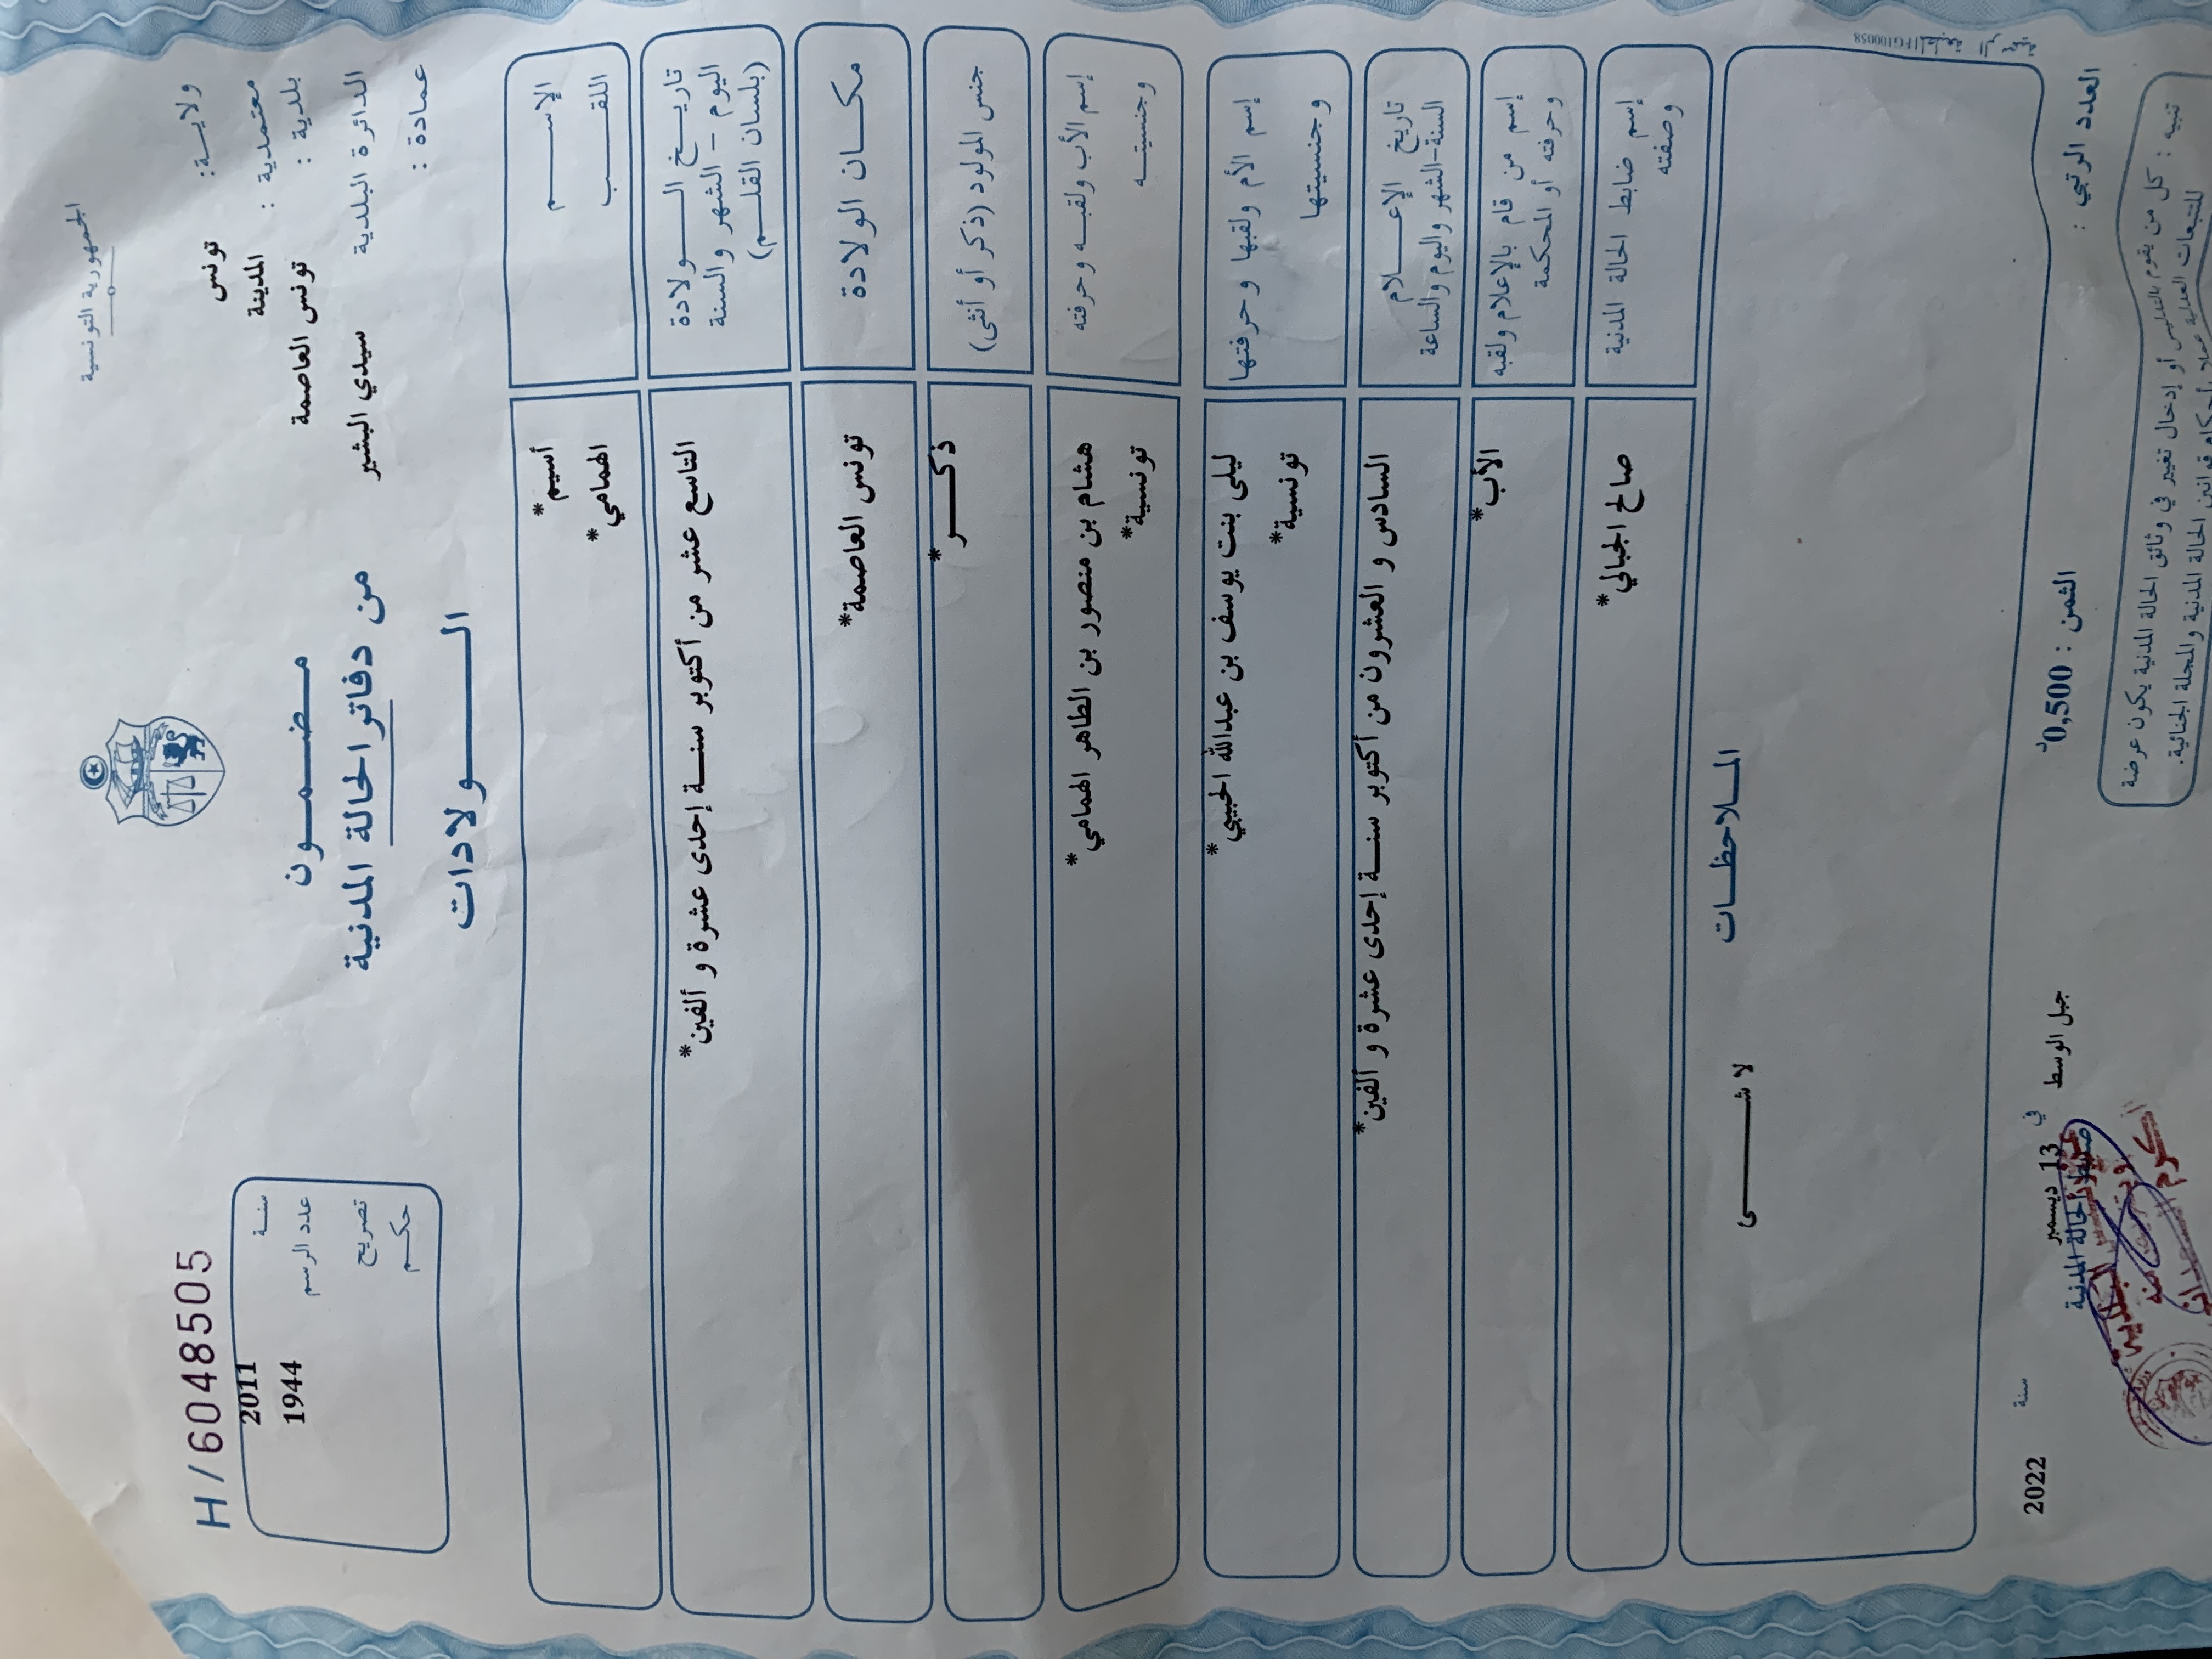 الجمهورية التونسية
H/6048505
ولايــة: تونس
معتمدية : المدينة
بلدية : تونس العاصمة
الدائرة البلدية سيدي البشير
عمادة :
مـضـمـون
من دفاتر الحالة المدنية
الـــولادات
سنـة 2011
عدد الرسم 1944
تصريح
حكـم
الإســـم أسيم*
اللقـــب الهمامي*
تاريـخ الـــولادة
اليوم - الشهر والسنة
(بلسان القلـم)
التاسع عشر من أكتوبر سنـة إحدى عشرة و ألفين*
مكـان الولادة تونس العاصمة*
جنس المولود (ذكر أو أنثى) ذكـــر*
إسم الأب ولقبـه وحرفته هشام بن منصور بن الطاهر الهمامي*
وجنسيتـه تونسية*
إسم الأم ولقبها وحرفتها ليلى بنت يوسف بن عبدالله الحبيبي*
وجنسيتها تونسية*
تاريخ الإعـــلام
السنة-الشهر واليوم والساعة
السادس و العشرون من أكتوبر سنـة إحدى عشرة و ألفين*
إسم من قام بالإعلام ولقبه
وحرفته أو المحكمة
الأب*
إسم ضابط الحالة المدنية
وصفته
صالح الجبالي*
المـلاحظـات
لا شـــــى
العدد الرتبي :
الثمن : 0,500د
جبل الوسط في 13 ديسمبر سنة 2022
ضابط الحالة المدنية
تنبيه : كل من يقوم بالتدليس أو إدخال تغيير في وثائق الحالة المدنية يكون عرضة
للتتبعات العدلية عملا بأحكام قوانين الحالة المدنية والمجلة الجنائية.